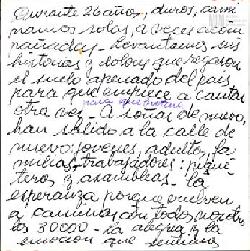 Durante 26 años, duros, cami
namos solos, a veces acom
pañadas. Levantamos sus
historias y dolores que regaron
el suelo apenado del país
para que empiece a cantar
otra vez. A soñar de nuevo,
han salido a la calle de
nuevo jovenes, adultos, fa
milias, trabajadores; pique
teros y asambleas. La
esperanza porque vuelven
a caminar con todos nuestros
los 30000 - la alegria y la
emocion que